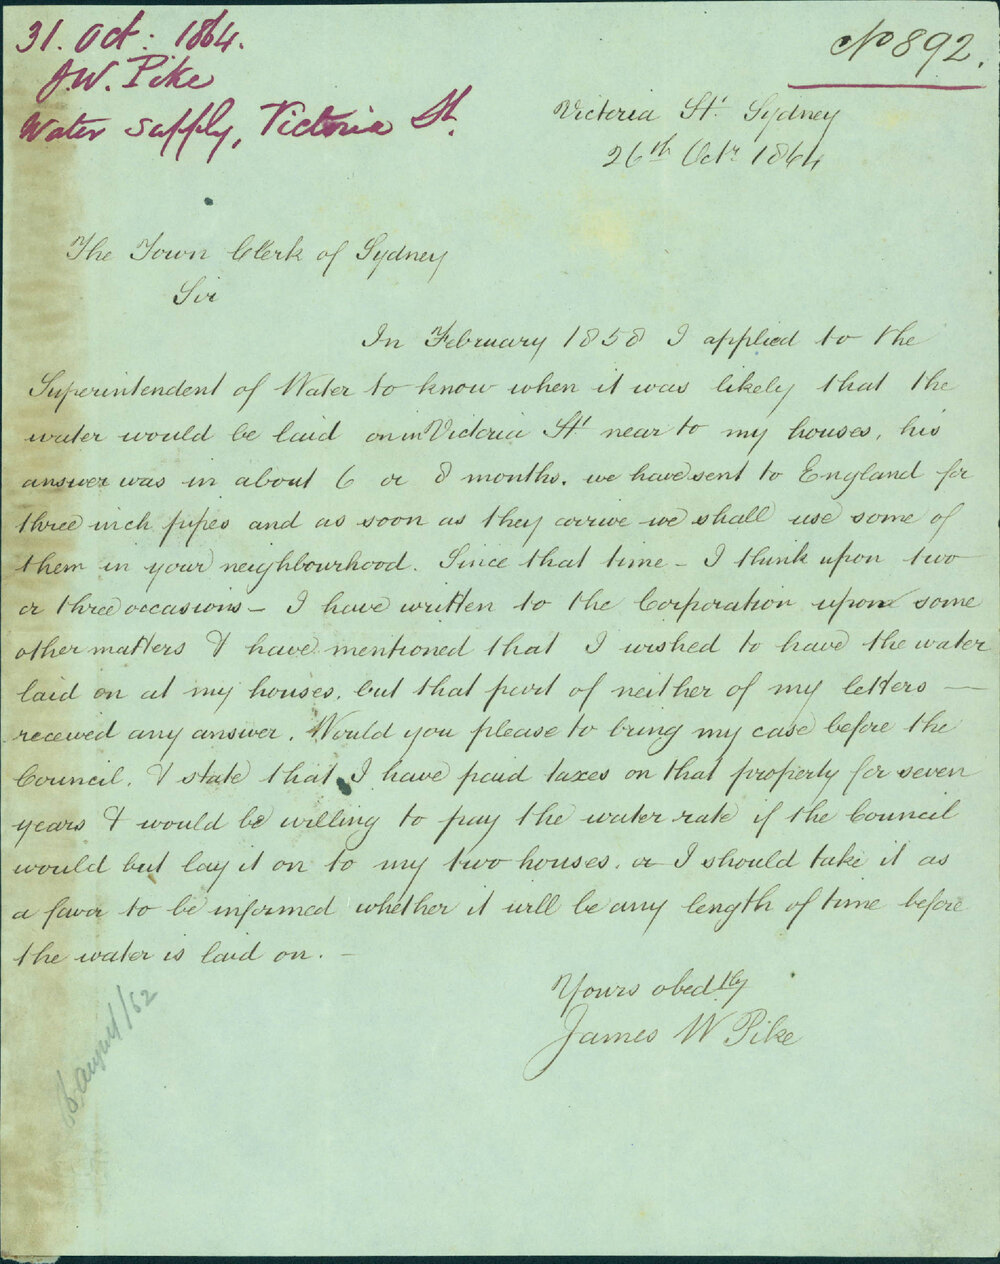 31. Oct. 1864.
J.W. Pike
Water supply, Victoria St.
No 892.
Victoria St. Sydney
26th Octr 1864
The Town Clerk of Sydney
Sir
In February 1858 I applied to the
Superintendent of Water to know when it was likely that the
water would be laid on in Victoria St. near to my houses, his
answer was in about 6 or 8 months. we have sent to England for
three inch pipes and as soon as they arrive we shall use some of
them in your neighbourhood. Since that time - I think upon two
or three occasions - I have written to the Corporation upon some
other matters & have mentioned that I wished to have the water
laid on at my houses, but that part of neither of my letters —
received any answer. Would you please to bring my case before the
Council. & state that I have paid taxes on that property for seven
years & would be willing to pay the water rate if the Council
would but lay it on to my two houses. or I should take it as
a favor to be informed whether it will be any length of time before
the water is laid on. —
Yours obedtly
James W Pike
August/62